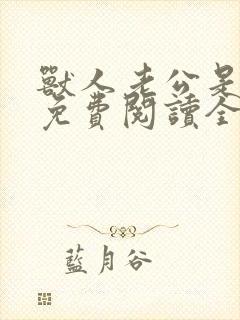 獸人老公是
免費閱讀全
藍月谷